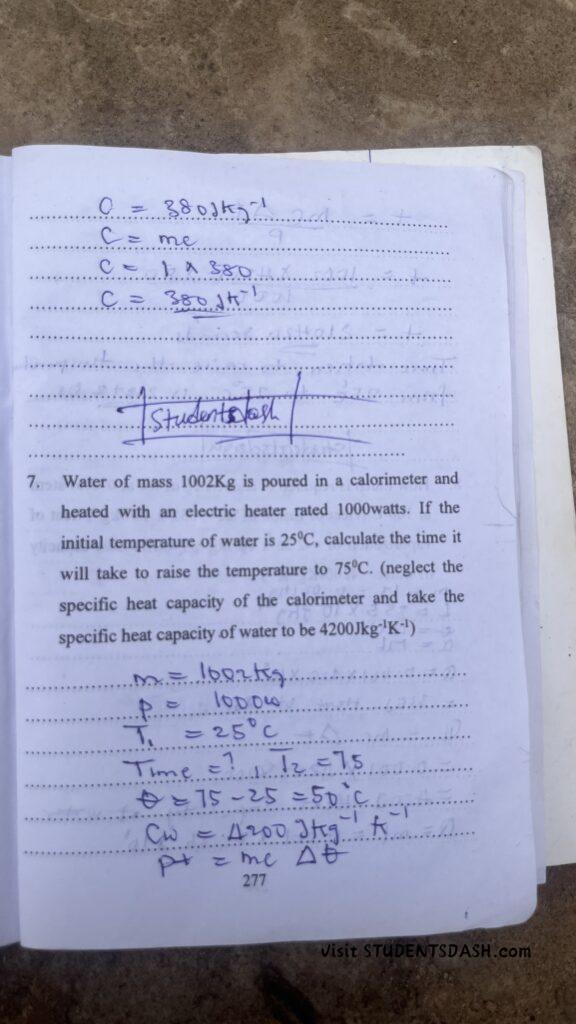 O = 380Jkg⁻¹
C = mc
C = 1 x 380
C = 380 JK⁻¹
Studentsdash
7. Water of mass 1002Kg is poured in a calorimeter and
heated with an electric heater rated 1000watts. If the
initial temperature of water is 25⁰C, calculate the time it
will take to raise the temperature to 75⁰C. (neglect the
specific heat capacity of the calorimeter and take the
specific heat capacity of water to be 4200Jkg⁻¹K⁻¹)
m = 1002kg
P = 1000w
T₁ = 25°C
Time = ?, T₂ = 75
θ = 75 - 25 = 50°C
Cw = 4200 Jkg⁻¹ K⁻¹
pt = mc Δθ
277
Visit STUDENTSDASH.com